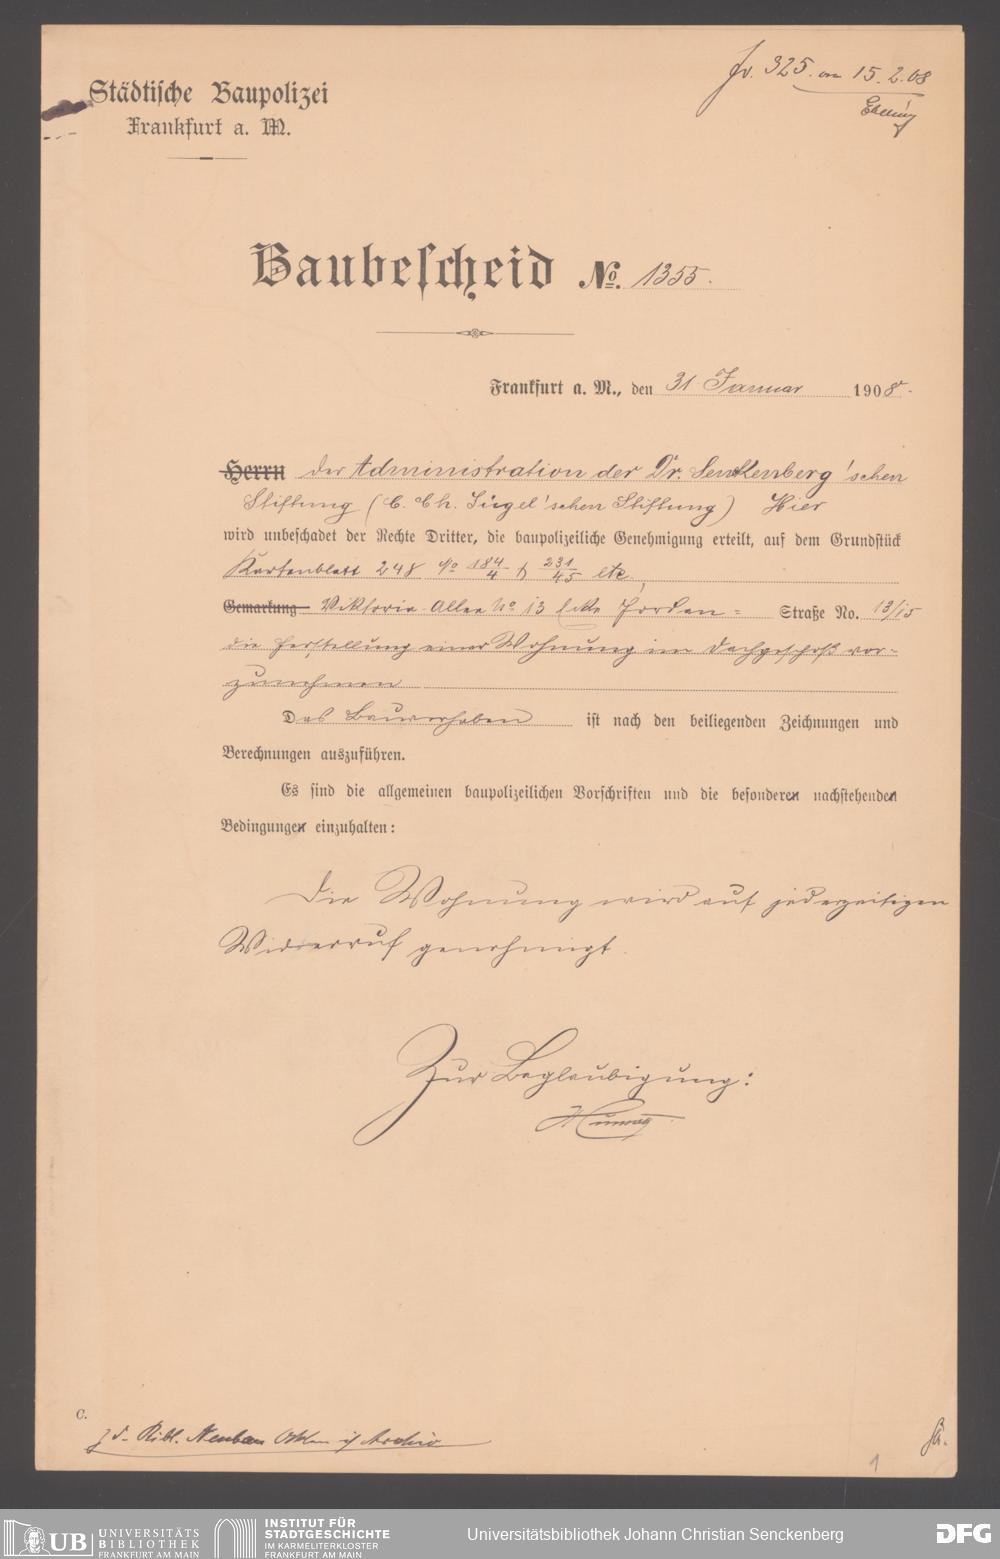 Jr. 325. am 15.2.08
Städtische Baupolizei
Frankfurt a. M.
Baubescheid No. 1355.
Frankfurt a. M., den 31. Januar 1908.
Herrn der Administration der Dr. Senckenberg'schen
Stiftung (C. Ch. Siegel'schen Stiftung) Hier
wird unbeschadet der Rechte Dritter, die baupolizeiliche Genehmigung erteilt, auf dem Grundstück
Kartenblatt 248 No 184/4 & 231/45 etc.,
Gemarkung Viktoria-Allee No 13 Ecke Jordan= Straße No. 13/15
die Herstellung einer Wohnung im Dachgeschoß vor-
zunehmen
Das Bauvorhaben ist nach den beiliegenden Zeichnungen und
Berechnungen auszuführen.
Es sind die allgemeinen baupolizeilichen Vorschriften und die besonderen nachstehenden
Bedingungen einzuhalten:
Die Wohnung wird auf jederzeitigen
Widerruf genehmigt.
Zur Beglaubigung:
C.
z. d. Bibl. Neubau Akten i/ Archiv
1
UB UNIVERSITÄTS
BIBLIOTHEK
FRANKFURT AM MAIN
INSTITUT FÜR
STADTGESCHICHTE
IM KARMELITERKLOSTER
FRANKFURT AM MAIN
Universitätsbibliothek Johann Christian Senckenberg
DFG